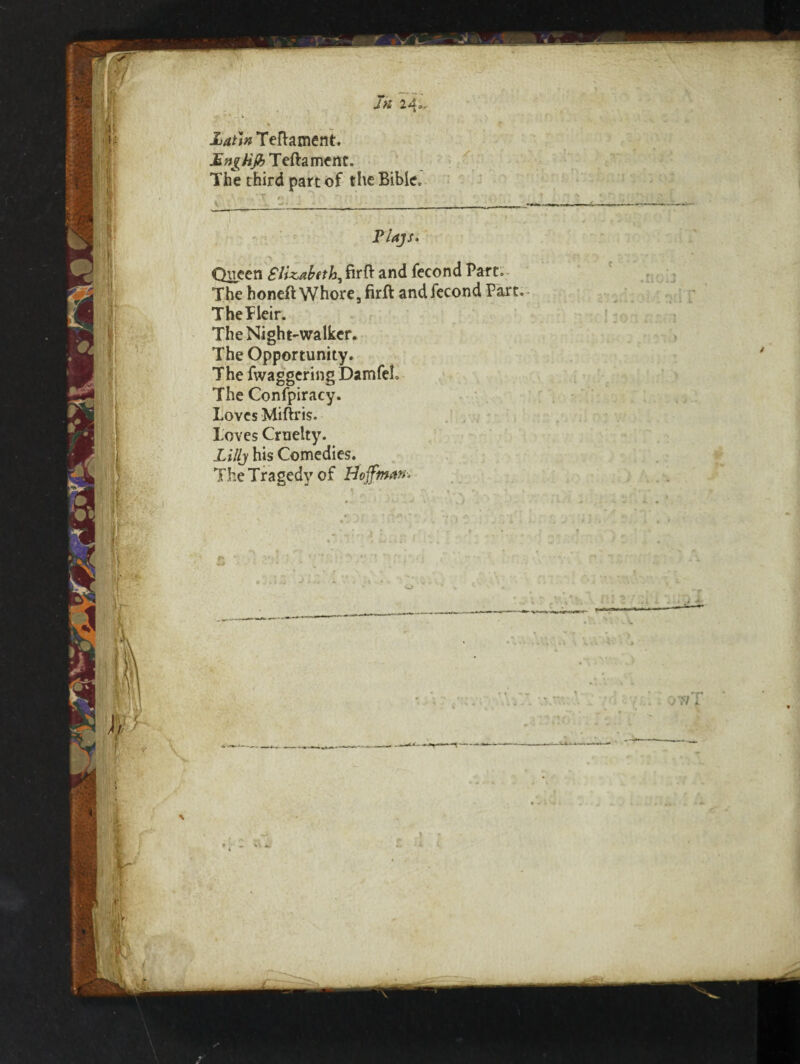 In 24.
Latin Teſtament.
Engliſh Teſtament.
The third part of the Bible.
Plays.
Queen Elizabeth, firſt and ſecond Part.
The honeſt Whore, firſt and ſecond Part.
The Fleir.
The Night-walker.
The Opportunity.
The ſwaggering Damſel.
The Conſpiracy.
Loves Miſtris.
Loves Cruelty.
Lilly his Comedies.
The Tragedy of Hoffman.